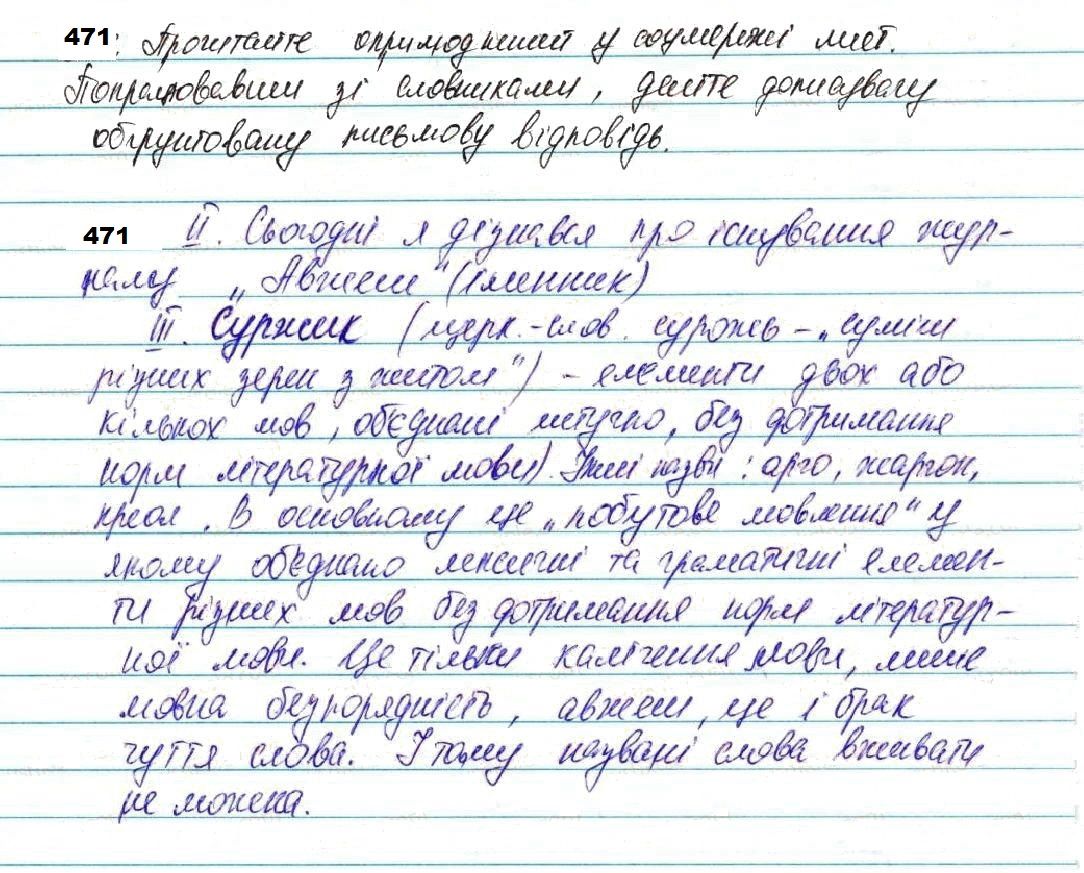 471: Прочитайте оприлюднений у соцмережі лист.
Попрацювавши зі словниками, дайте дописувачу
обґрунтовану письмову відповідь.
471 ІІ. Сьогодні я дізнався про існування жур-
налу „Авжеж" (іменник)
ІІІ. Суржик (церк.-слов. сурожь – „суміш
різних зерен з житом") – елементи двох або
кількох мов, об'єднані штучно, без дотримання
норм літературної мови). Інші назви: арго, жаргон,
креол. В основному це „побутове мовлення" у
якому об'єднано лексичні та граматичні елемен-
ти різних мов без дотримання норм літератур-
ної мови. Це тільки калічення мови, лише
мовна безпорядність, авжеж, це і брак
чуття слова. І тому названі слова вживати
не можна.